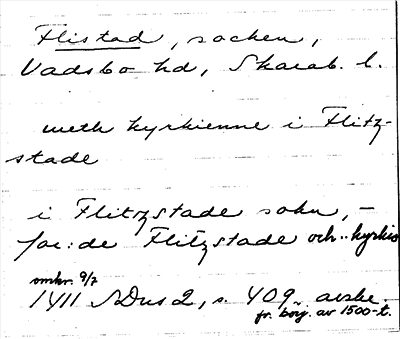 Flistad, socken,
Vadsbo hd, Skarab. l.
meth kyrkienne i Flitz-
stade
i Flitzstade sokn, -
för:de Flitzstade och kyrkio
omkr. 9/7
1411 SDns 2, s. 409 avskr.
fr. börj. av 1500-t.